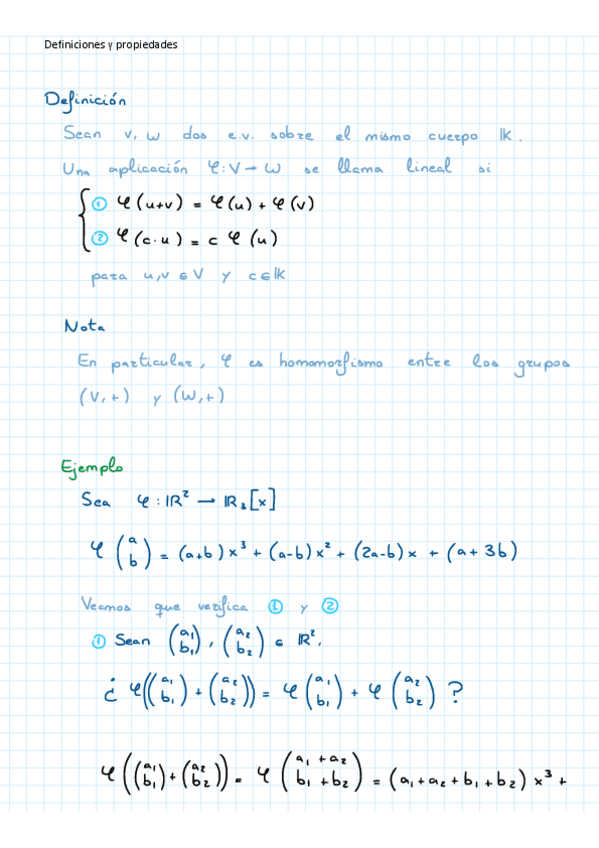 Definiciones y propiedades
Definición
Sean V, W dos e.v. sobre el mismo cuerpo IK.
Una aplicación φ: V → W se llama lineal si
① φ(u+v) = φ(u) + φ(v)
② φ(c·u) = c φ(u)
para u,v ∈ V y c ∈ IK
Nota
En particular, φ es homomorfismo entre los grupos
(V,+) y (W,+)
Ejemplo
Sea φ: IR² → IR₃[x]
φ(a b) = (a+b)x³ + (a-b)x² + (2a-b)x + (a+3b)
Veamos que verifica ① y ②
① Sean (a₁ b₁), (a₂ b₂) ∈ IR².
¿ φ((a₁ b₁) + (a₂ b₂)) = φ(a₁ b₁) + φ(a₂ b₂) ?
φ((a₁ b₁) + (a₂ b₂)) = φ(a₁+a₂ b₁+b₂) = (a₁+a₂+b₁+b₂)x³ +